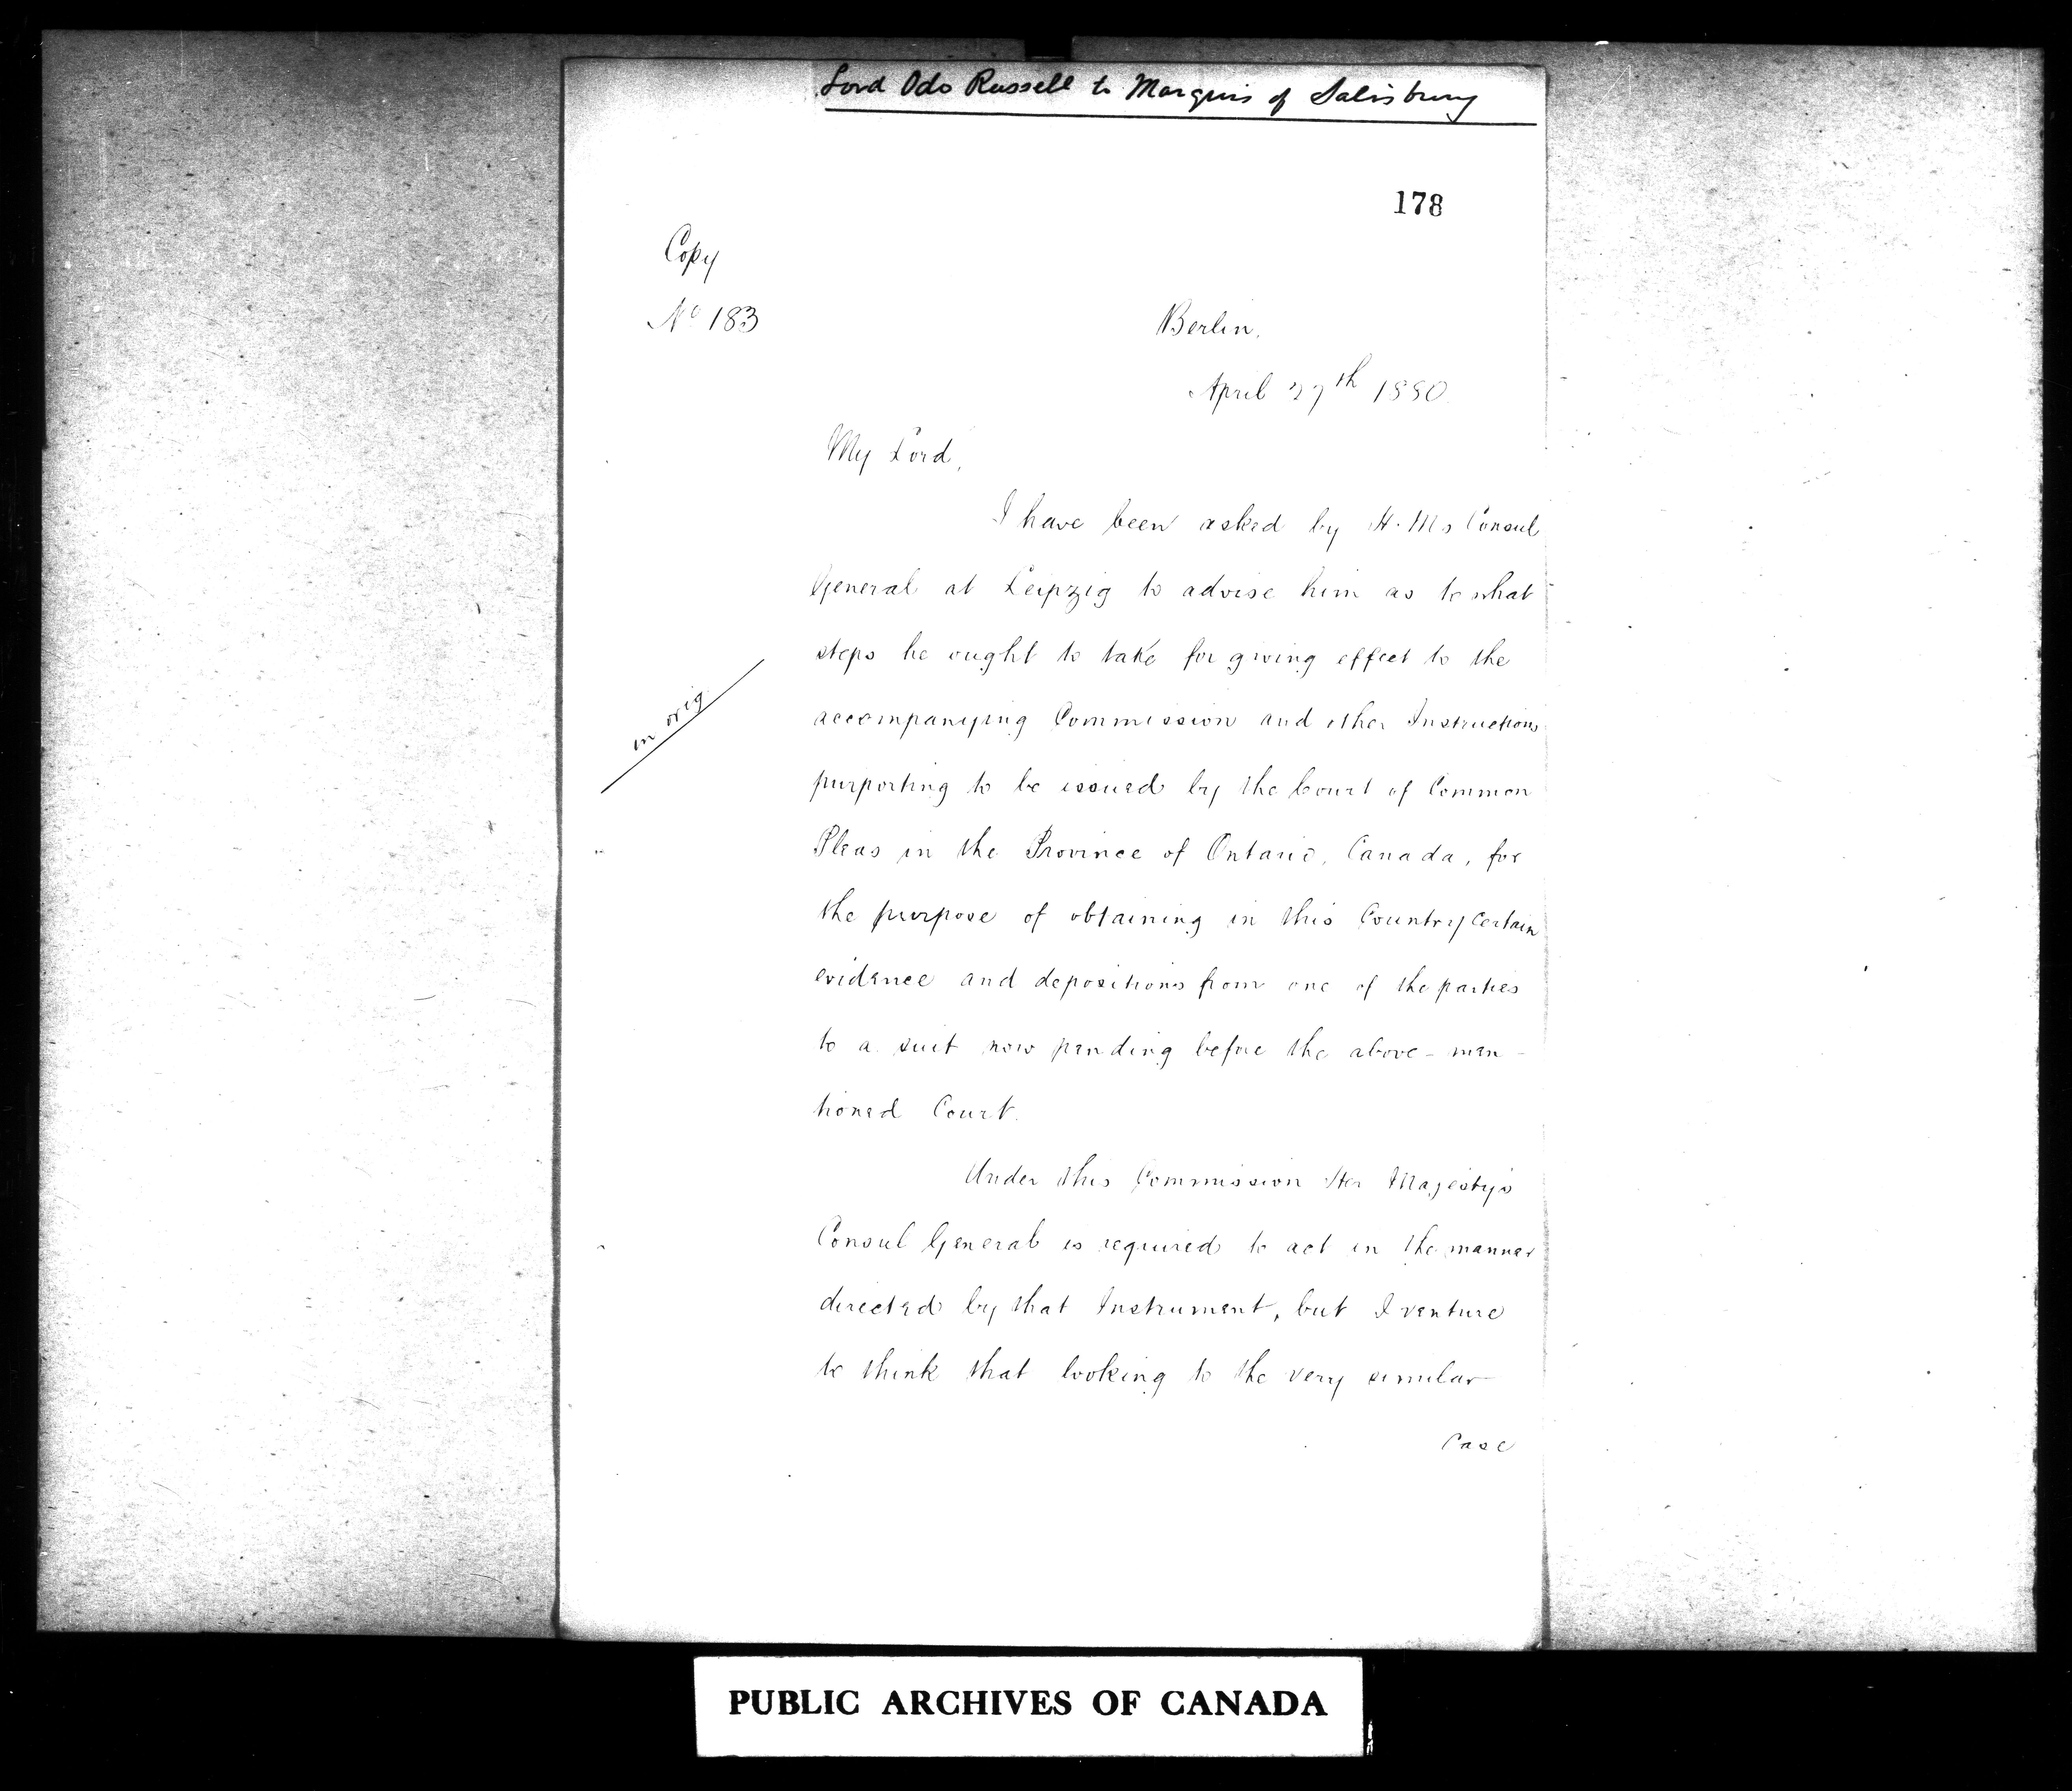 Lord Odo Russell to Marquis of Salisbury
178
Copy
No 183
Berlin,
April 27th 1880.
My Lord,
I have been asked by H. Ms Consul
General at Leipzig to advise him as to what
steps he ought to take for giving effect to the
in orig
accompanying Commission and other Instructions
purporting to be issued by the Court of Common
Pleas in the Province of Ontario, Canada, for
the purpose of obtaining in this Country Certain
evidence and depositions from one of the parties
to a suit now pending before the above-men-
tioned Court.
Under this Commission Her Majesty's
Consul General is required to act in the manner
directed by that Instrument, but I venture
to think that looking to the very similar
Case
PUBLIC ARCHIVES OF CANADA